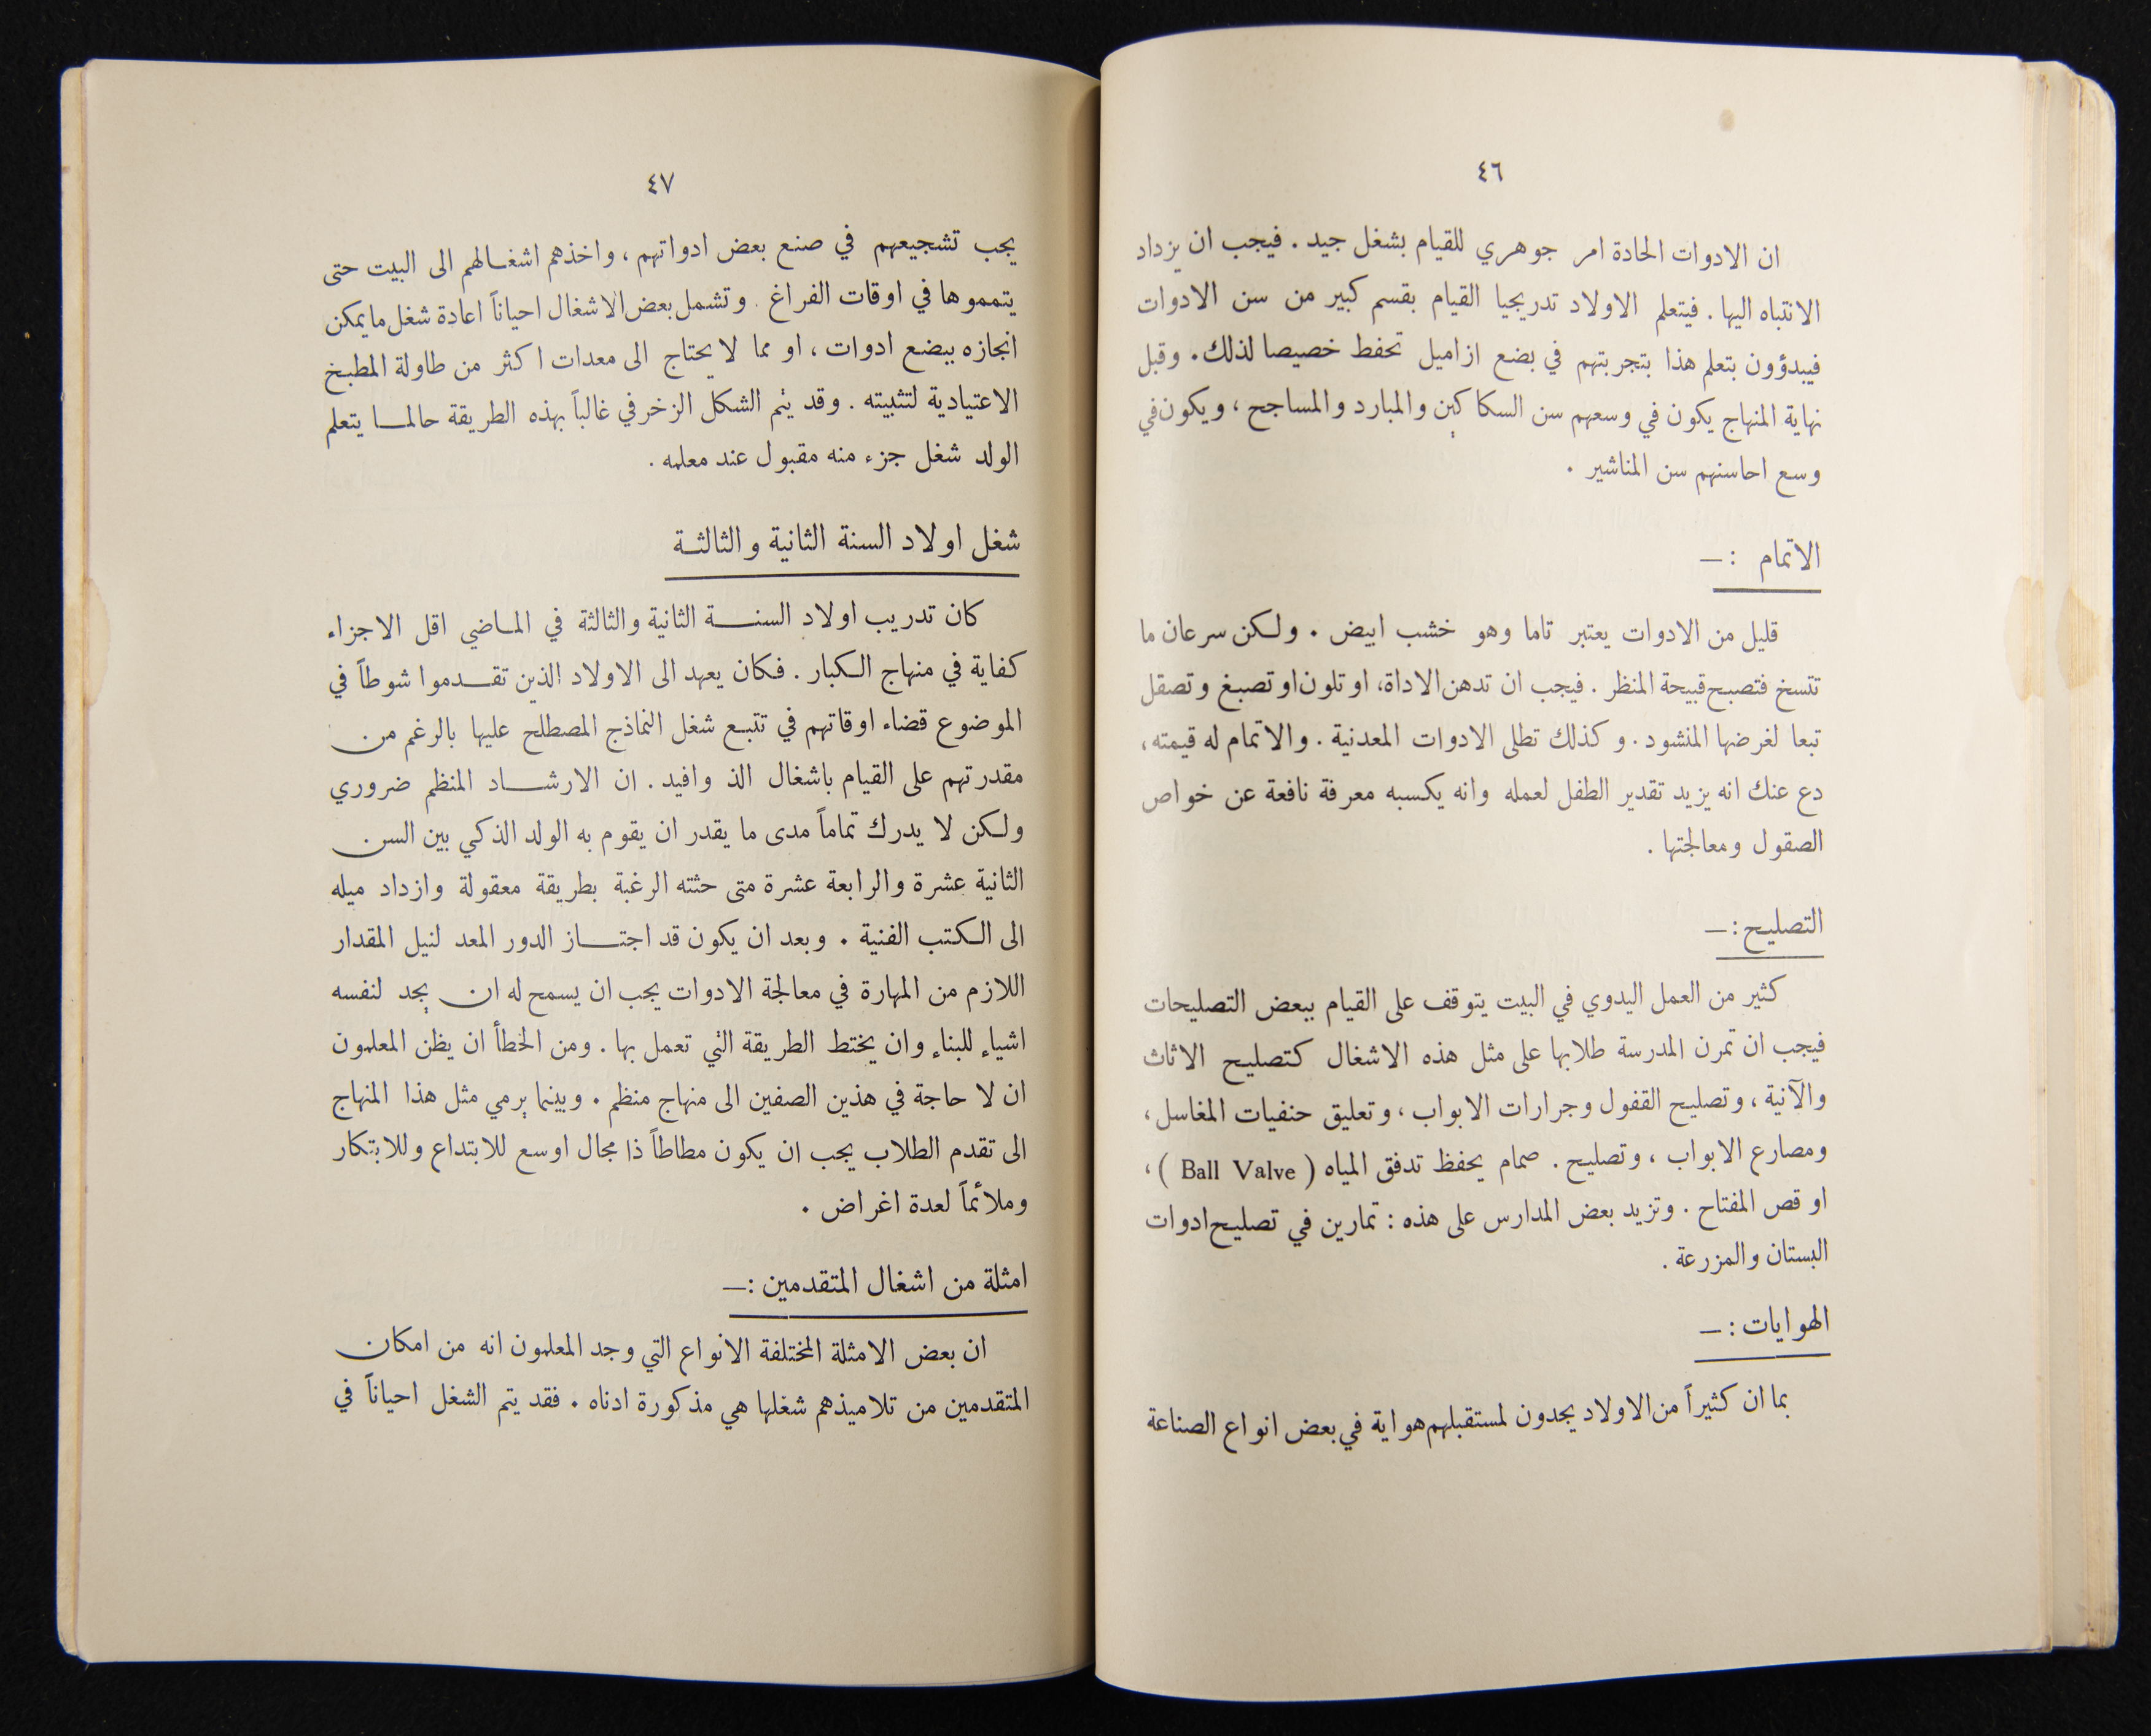 ٤٦
ان الادوات الحادة امر جوهري للقيام بشغل جيد . فيجب ان يزداد
الانتباه اليها . فيتعلم الاولاد تدريجيا القيام بقسم كبير من سن الادوات
فيبدؤون بتعلم هذا بتجربتهم في بضع ازاميل تحفط خصيصا لذلك . وقبل
نهاية المنهاج يكون في وسعهم سن السكاكين والمبارد والمساجح ، ويكون في
وسع احاسنهم سن المناشير .
الاتمام : —
قليل من الادوات يعتبر تاما وهو خشب ابيض . ولكن سرعان ما
تتسخ فتصبح قبيحة المنظر . فيجب ان تدهن الاداة، او تلون او تصبغ وتصقل
تبعا لغرضها المنشود . وكذلك تطلى الادوات المعدنية . والاتمام له قيمته ،
دع عنك انه يزيد تقدير الطفل لعمله وانه يكسبه معرفة نافعة عن خواص
الصقول ومعالجتها .
التصليح : —
كثير من العمل اليدوي في البيت يتوقف على القيام ببعض التصليحات
فيجب ان تمرن المدرسة طلابها على مثل هذه الاشغال كتصليح الاثاث
والآنية ، وتصليح القفول وجرارات الابواب ، وتعليق حنفيات المغاسل ،
ومصارع الابواب ، وتصليح . صمام يحفظ تدفق المياه ( Ball Valve ) ،
او قص المفتاح . وتزيد بعض المدارس على هذه : تمارين في تصليح ادوات
البستان والمزرعة .
الهوايات : —
بما ان كثيراً من الاولاد يجدون لمستقبلهم هواية في بعض انواع الصناعة
٤٧
يجب تشجيعهم في صنع بعض ادواتهم ، واخذهم اشغالهم الى البيت حتى
يتمموها في اوقات الفراغ . وتشمل بعض الاشغال احياناً اعادة شغل ما يمكن
انجازه ببضع ادوات ، او مما لا يحتاج الى معدات اكثر من طاولة المطبخ
الاعتيادية لتثبيته . وقد يتم الشكل الزخرفي غالباً بهذه الطريقة حالما يتعلم
الولد شغل جزء منه مقبول عند معلمه .
شغل اولاد السنة الثانية والثالثة
كان تدريب اولاد السنة الثانية والثالثة في الماضي اقل الاجزاء
كفاية في منهاج الكبار . فكان يعهد الى الاولاد الذين تقدموا شوطاً في
الموضوع قضاء اوقاتهم في تتبع شغل النماذج المصطلح عليها بالرغم من
مقدرتهم على القيام باشغال الذ وافيد . ان الارشاد المنظم ضروري
ولكن لا يدرك تماماً مدى ما يقدر ان يقوم به الولد الذكي بين السن
الثانية عشرة والرابعة عشرة متى حثته الرغبة بطريقة معقولة وازداد ميله
الى الكتب الفنية . وبعد ان يكون قد اجتاز الدور المعد لنيل المقدار
اللازم من المهارة في معالجة الادوات يجب ان يسمح له ان يجد لنفسه
اشياء للبناء وان يختط الطريقة التي تعمل بها . ومن الخطأ ان يظن المعلمون
ان لا حاجة في هذين الصفين الى منهاج منظم . وبينما يرمي مثل هذا المنهاج
الى تقدم الطلاب يجب ان يكون مطاطاً ذا مجال اوسع للابتداع وللابتكار
وملائماً لعدة اغراض .
امثلة من اشغال المتقدمين : —
ان بعض الامثلة المختلفة الانواع التي وجد المعلمون انه من امكان
المتقدمين من تلاميذهم شغلها هي مذكورة ادناه . فقد يتم الشغل احياناً في